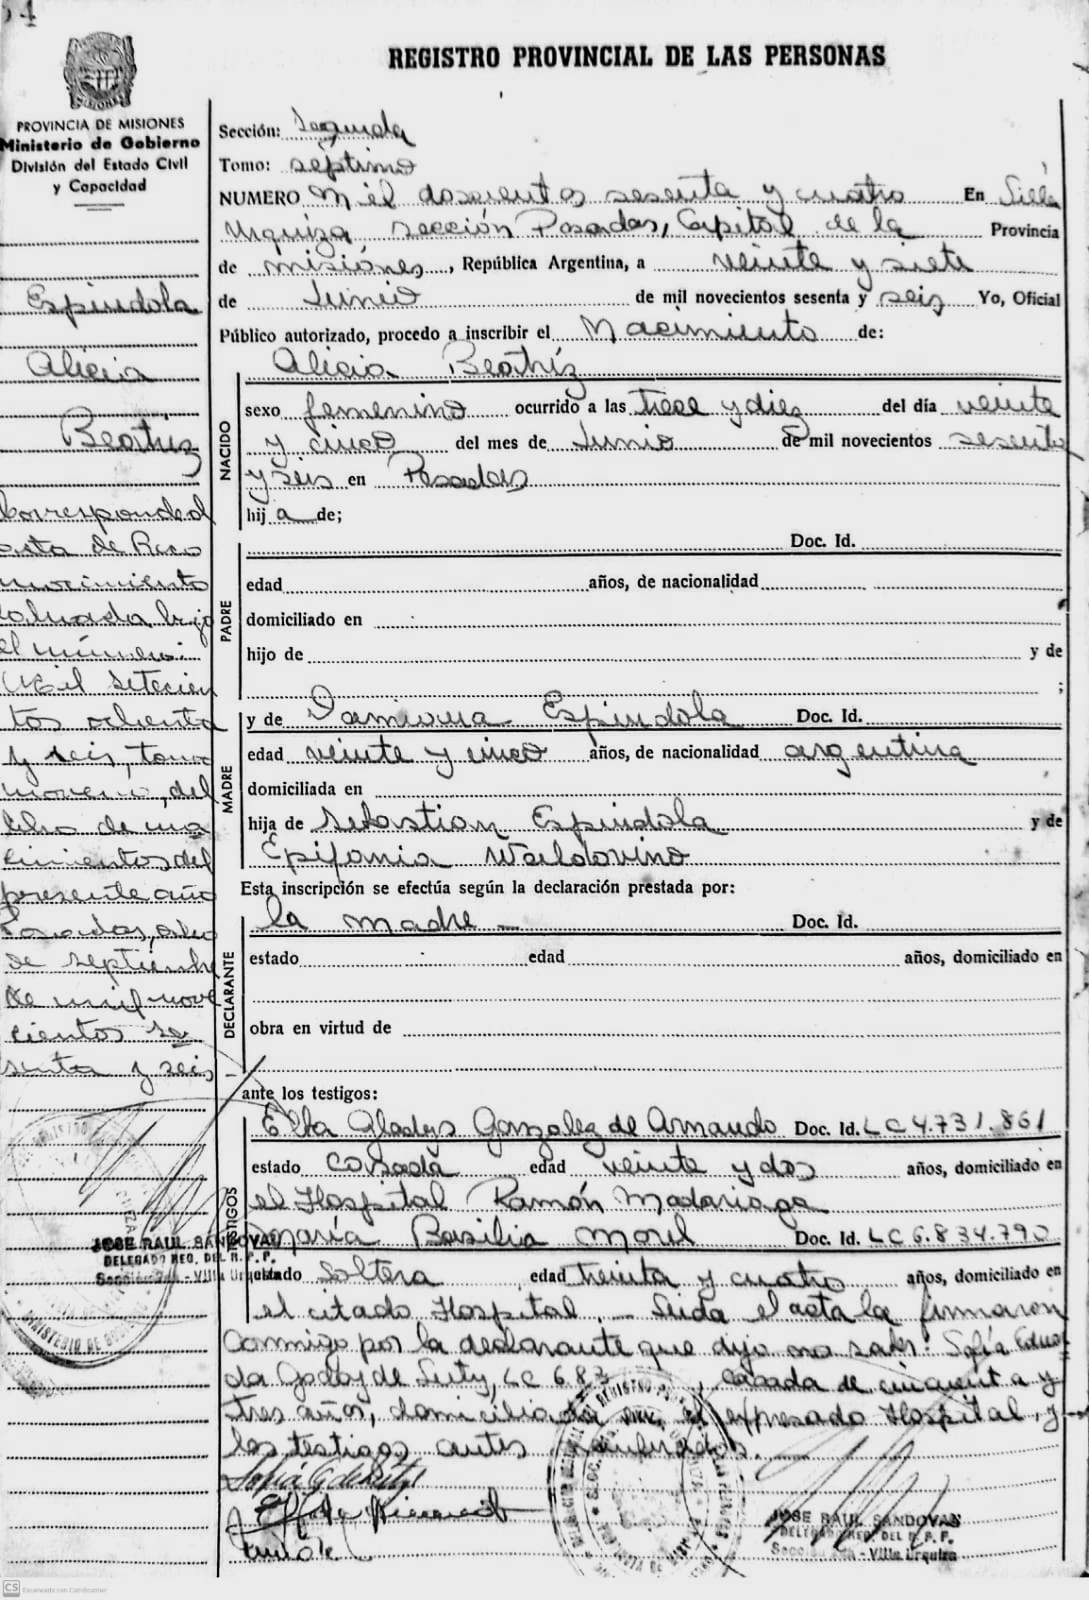 REGISTRO PROVINCIAL DE LAS PERSONAS
PROVINCIA DE MISIONES
Ministerio de Gobierno
División del Estado Civil
y Capacidad
Espindola
Alicia
Beatriz
Corresponde al
acta de Reco
nocimiento
labrada bajo
el número
Mil setecien
tos ochenta
y seis, tomo
noveno, del
libro de na
cimientos del
presente año
Posadas, ocho
de septiembre
de mil nove
cientos se
senta y seis
Sección: Segunda
Tomo: séptimo
NUMERO Mil doscientos sesenta y cuatro En Villa
Urquiza, sección Posadas, Capital de la Provincia
de misiones, República Argentina, a veinte y siete
de Junio de mil novecientos sesenta y seis Yo, Oficial
Público autorizado, procedo a inscribir el Nacimiento de:
NACIDO
Alicia Beatriz
sexo femenino ocurrido a las trece y diez del día veinte
y cinco del mes de Junio de mil novecientos sesenta
y seis en Posadas
hij a de;
PADRE
Doc. Id.
edad años, de nacionalidad
domiciliado en
hijo de y de
;
MADRE
y de Ramona Espindola Doc. Id.
edad veinte y cinco años, de nacionalidad argentina
domiciliada en
hija de Sebastian Espindola y de
Epifania Waldovino
Esta inscripción se efectúa según la declaración prestada por:
DECLARANTE
la madre Doc. Id.
estado edad años, domiciliado en
obra en virtud de
ante los testigos:
TESTIGOS
Elba Gladys Gonzalez de Armando Doc. Id. LC 4.731.861
estado casada edad veinte y dos años, domiciliado en
el Hospital Ramón Madariaga
María Basilia Morel Doc. Id. LC 6.834.790
estado Soltera edad treinta y cuatro años, domiciliado en
el citado Hospital. - Leida el acta la firmaron
conmigo por la declarante que dijo no saber: Sofía Eduar
da Godoy de LC 6.83 , casada de cincuenta y
tres años, domiciliada en el expresado Hospital, y
los testigos antes nombrados.
JOSE RAUL SANDOVAL
DELEGADO REG. DEL R. P. P.
Sección 2da - Villa Urquiza
JOSE RAUL SANDOVAL
DELEGADO REG. DEL R. P. P.
Sección 2da - Villa Urquiza
CS Escaneado con CamScanner